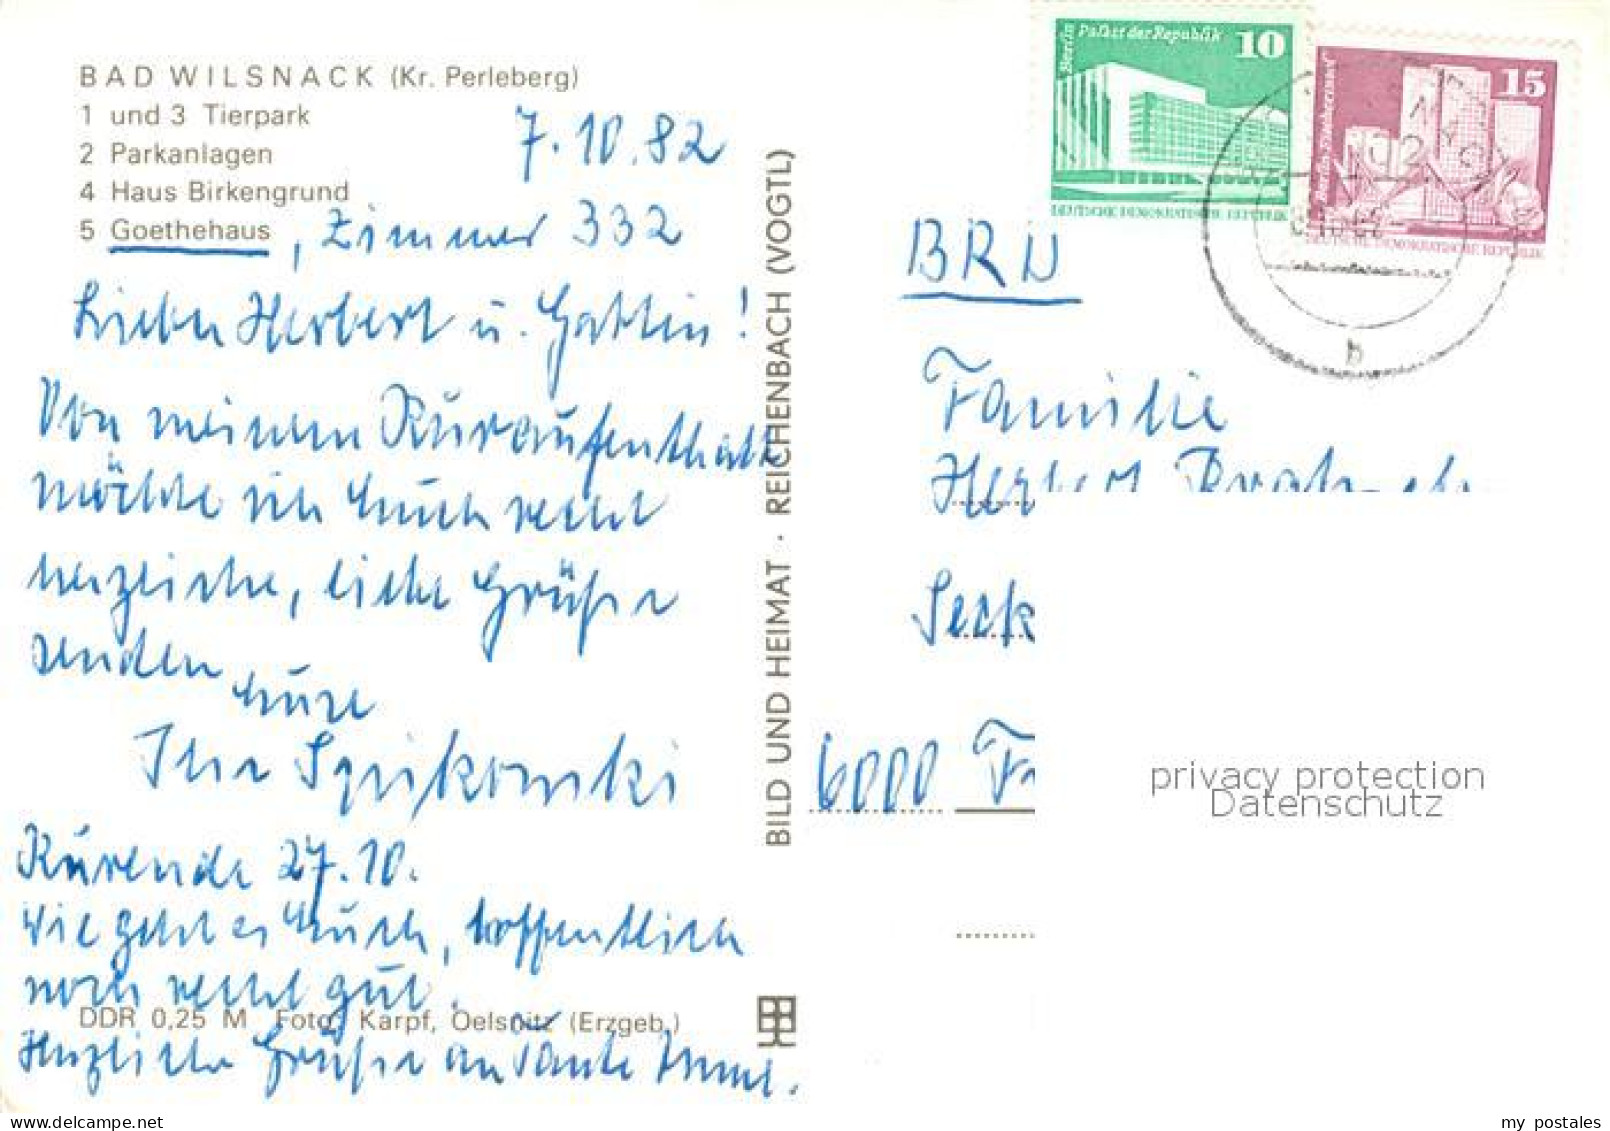 BAD WILSNACK (Kr. Perleberg)
1 und 3 Tierpark
2 Parkanlagen
4 Haus Birkengrund
5 Goethehaus, Zimmer 332
7.10.82
Lieber Herbert u. Gattin!
Von meinem Kuraufenthalt
möchte ich Euch recht
herzliche, liebe Grüße
senden
Eure
Ilse
Kurende 27.10.
Wie geht es Euch, hoffentlich
noch recht gut.
Herzliche Grüße an Tante
DDR 0,25 M Foto: Karpf, Oelsnitz (Erzgeb.)
BILD UND HEIMAT · REICHENBACH (VOGTL)
Berlin Palast der Republik
10
DEUTSCHE DEMOKRATISCHE REPUBLIK
15
DEUTSCHE DEMOKRATISCHE REPUBLIK
b
BRD
Familie
Herbert
Seck
6000 Fr
privacy protection
Datenschutz
my postales